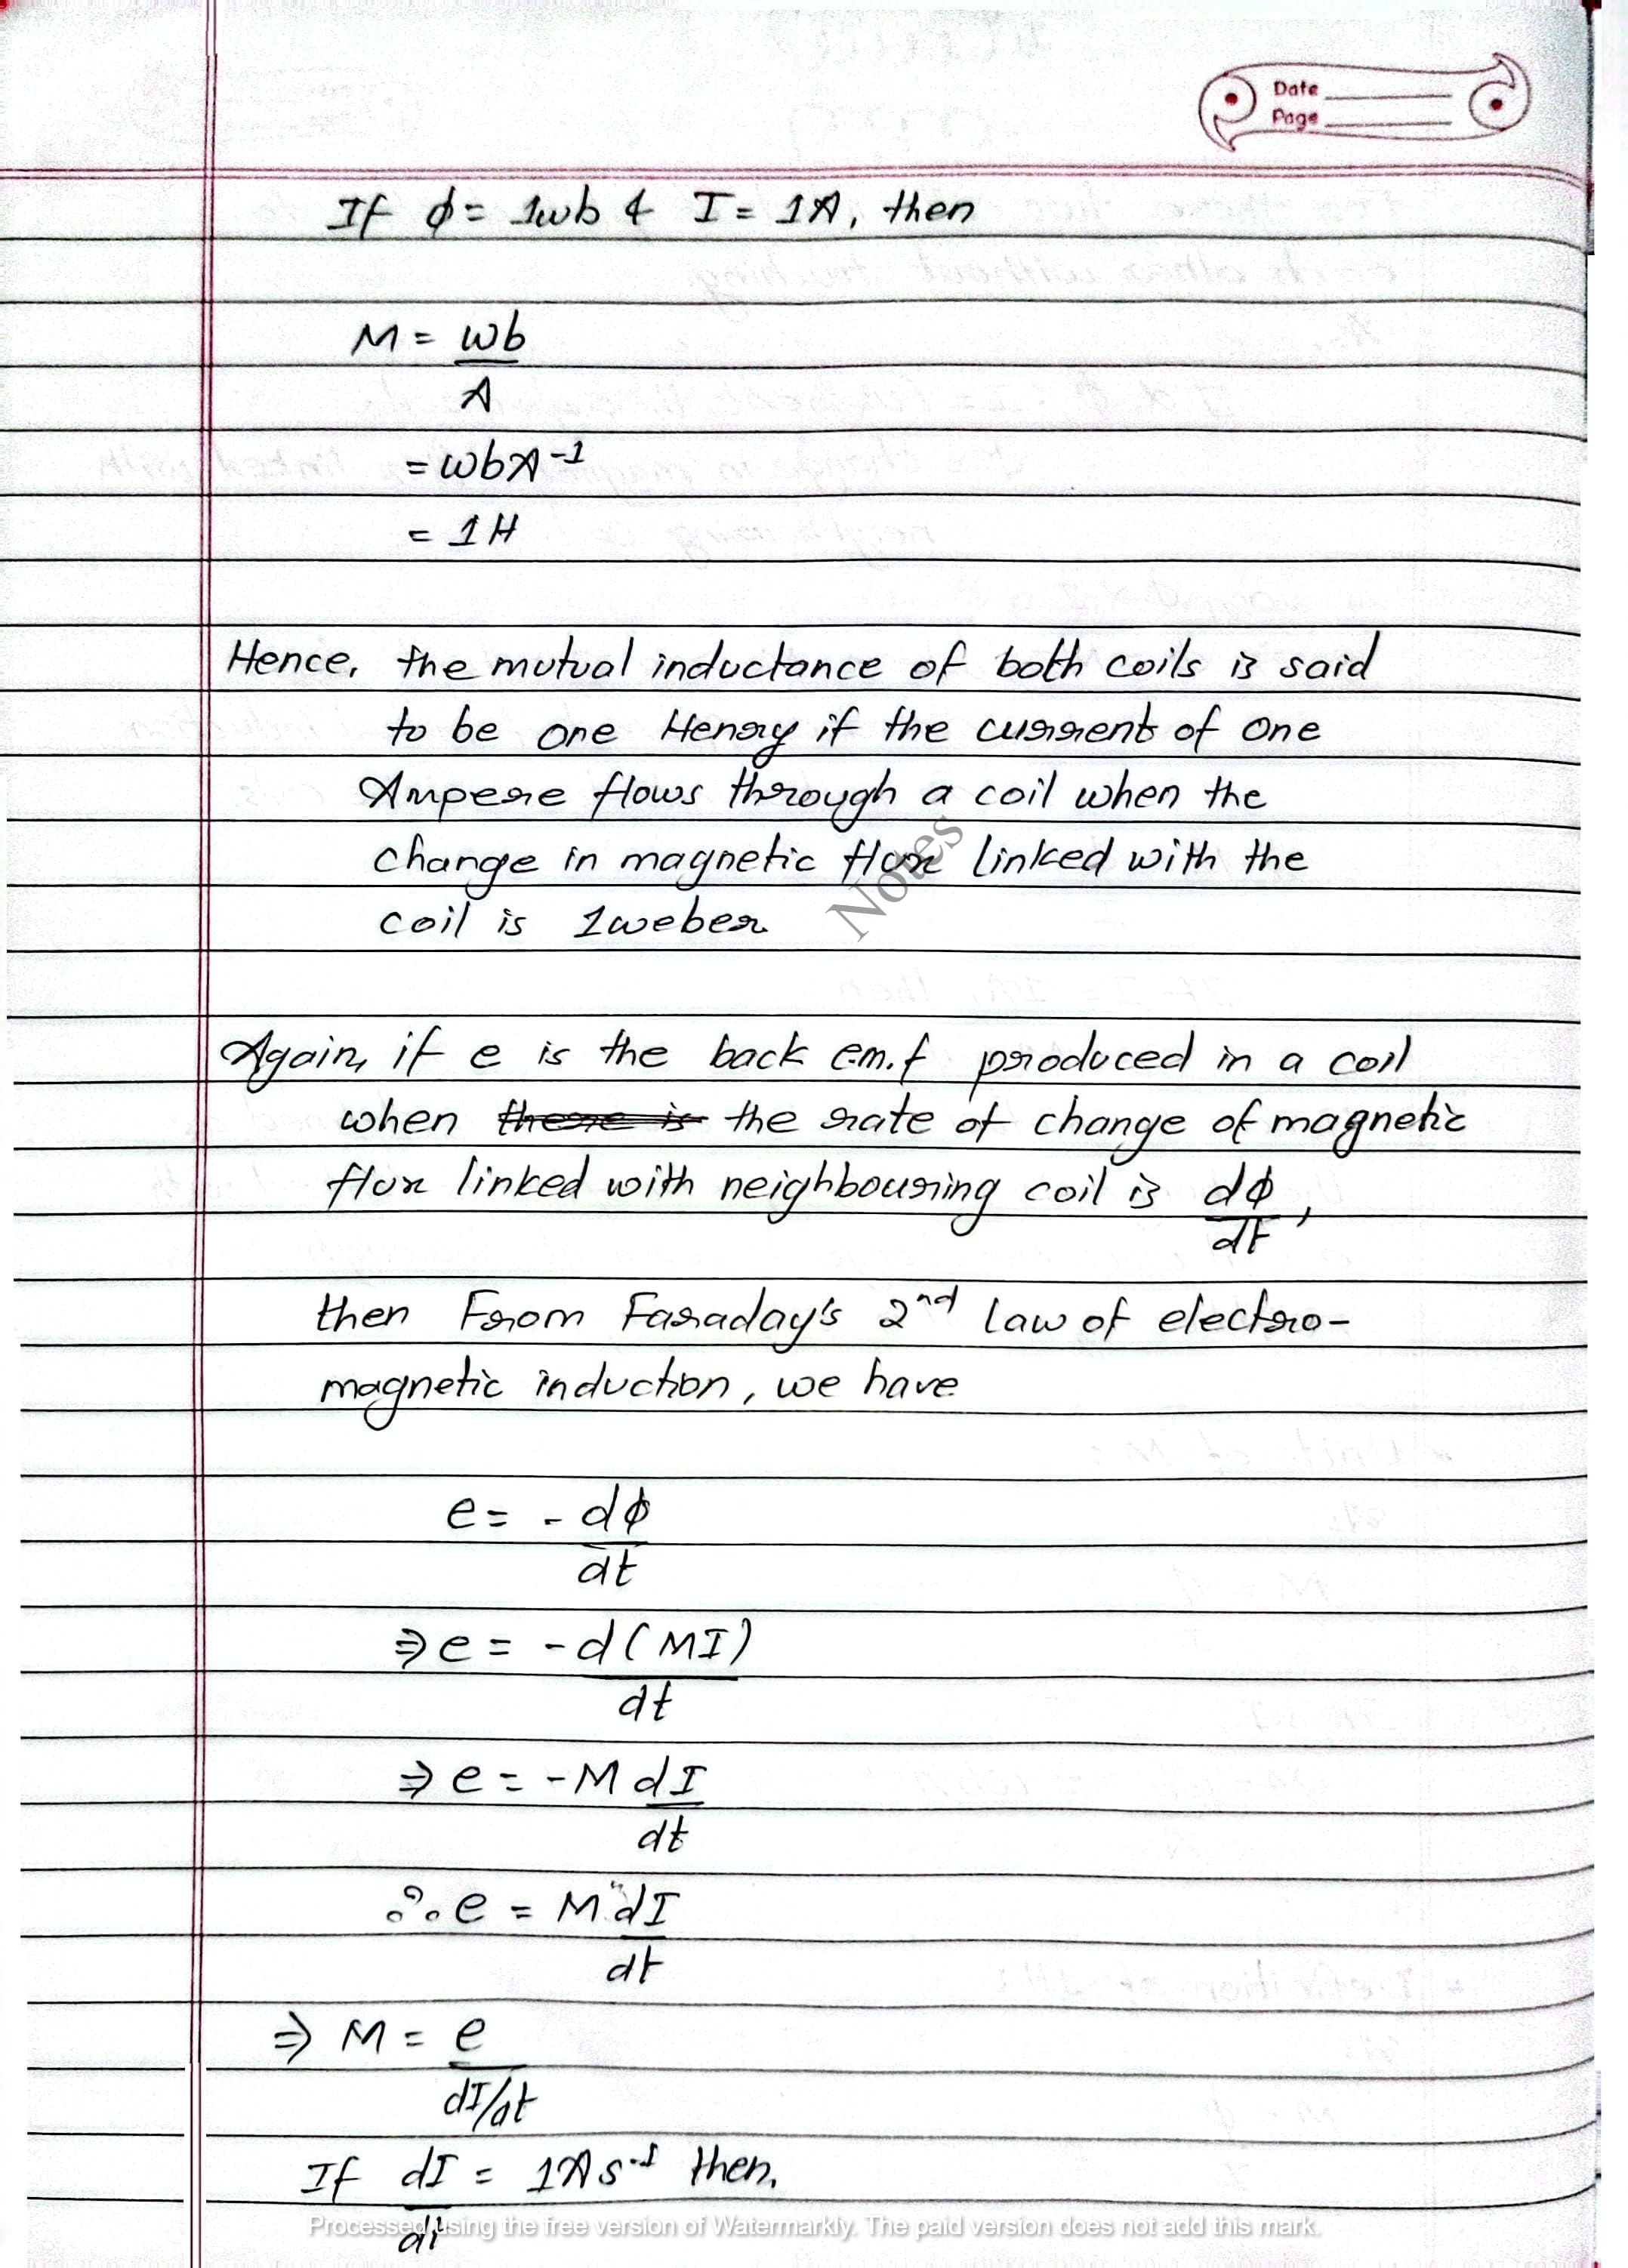 Date
Page
If ϕ = 1wb & I = 1A, then
M = wb
A
= wbA⁻¹
= 1H
Hence, the mutual inductance of both coils is said
to be one Henry if the current of one
Ampere flows through a coil when the
change in magnetic flux linked with the
coil is 1weber
Notes
Again, if e is the back e.m.f produced in a coil
when there is the rate of change of magnetic
flux linked with neighbouring coil is dϕ,
dt
then From Faraday's 2nd law of electro-
magnetic induction, we have
e = - dϕ
dt
⇒ e = - d(MI)
dt
⇒ e = -M dI
dt
∴ e = M dI
dt
⇒ M = e
dI/dt
If dI = 1As⁻¹ then,
dt
Processed using the free version of Watermarkly. The paid version does not add this mark.